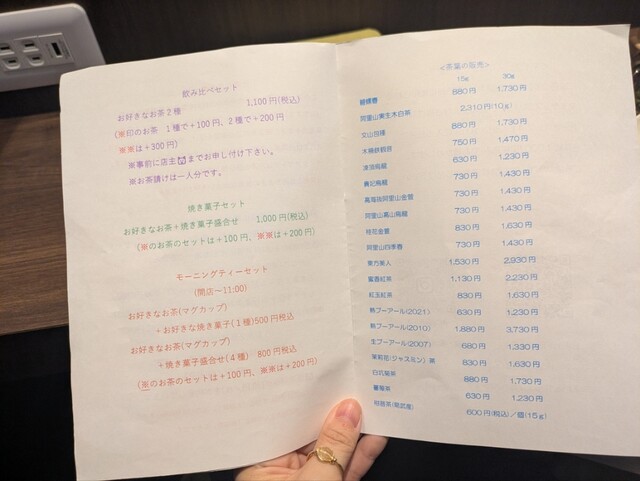 飲み比べセット
お好きなお茶2種 1,100円(税込)
(※印のお茶 1種で+100円、2種で+200円
※※は+300円)
※事前に店主までお申し付け下さい。
※お茶請けは一人分です。
焼き菓子セット
お好きなお茶+焼き菓子盛合せ 1,000円(税込)
(※のお茶のセットは+100円、※※は+200円)
モーニングティーセット
(開店〜11:00)
お好きなお茶(マグカップ)
+お好きな焼き菓子(1種)500円税込
お好きなお茶(マグカップ)
+焼き菓子盛合せ(4種) 800円税込
(※のお茶のセットは+100円、※※は+200円)
<茶葉の販売>
15g 30g
碧螺春 880円 1,730円
阿里山実生木白茶 2,310円(10g)
文山包種 880円 1,730円
木柵鉄観音 750円 1,470円
凍頂烏龍 630円 1,230円
貴妃烏龍 730円 1,430円
高海抜阿里山金萱 730円 1,430円
阿里山高山烏龍 730円 1,430円
桂花金萱 830円 1,630円
阿里山四季春 730円 1,430円
東方美人 1,530円 2,930円
蜜香紅茶 1,130円 2,230円
紅玉紅茶 830円 1,630円
熟プーアール(2021) 630円 1,230円
熟プーアール(2010) 1,880円 3,730円
生プーアール(2007) 680円 1,330円
茉莉花(ジャスミン) 830円 1,630円
白 880円 1,730円
630円 1,230円
600円(税込)/個(15g)